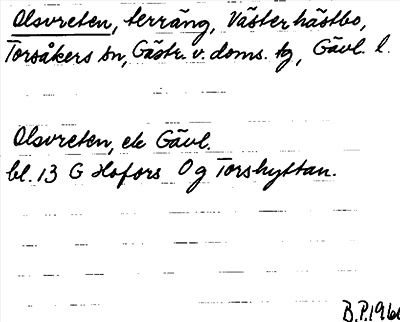 Olsvreten, terräng, Västerhästbo,
Torsåkers sn, Gästr. v. doms. tg, Gävl. l.
Olsvreten, ek Gävl.
bl. 13 G Hofors O g Torshyttan.
B.P.196